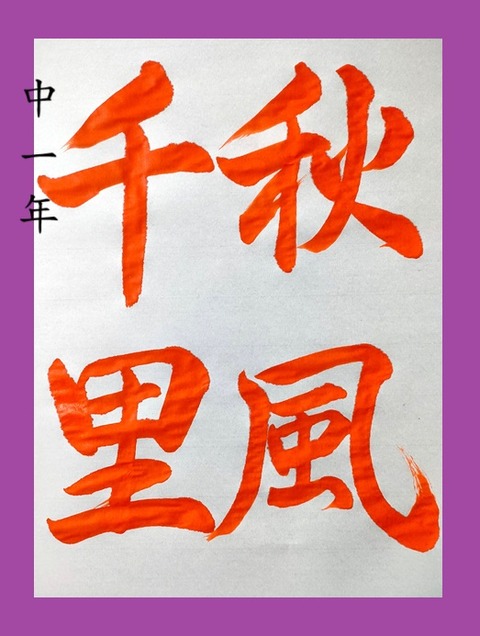 秋風
千里
中一年